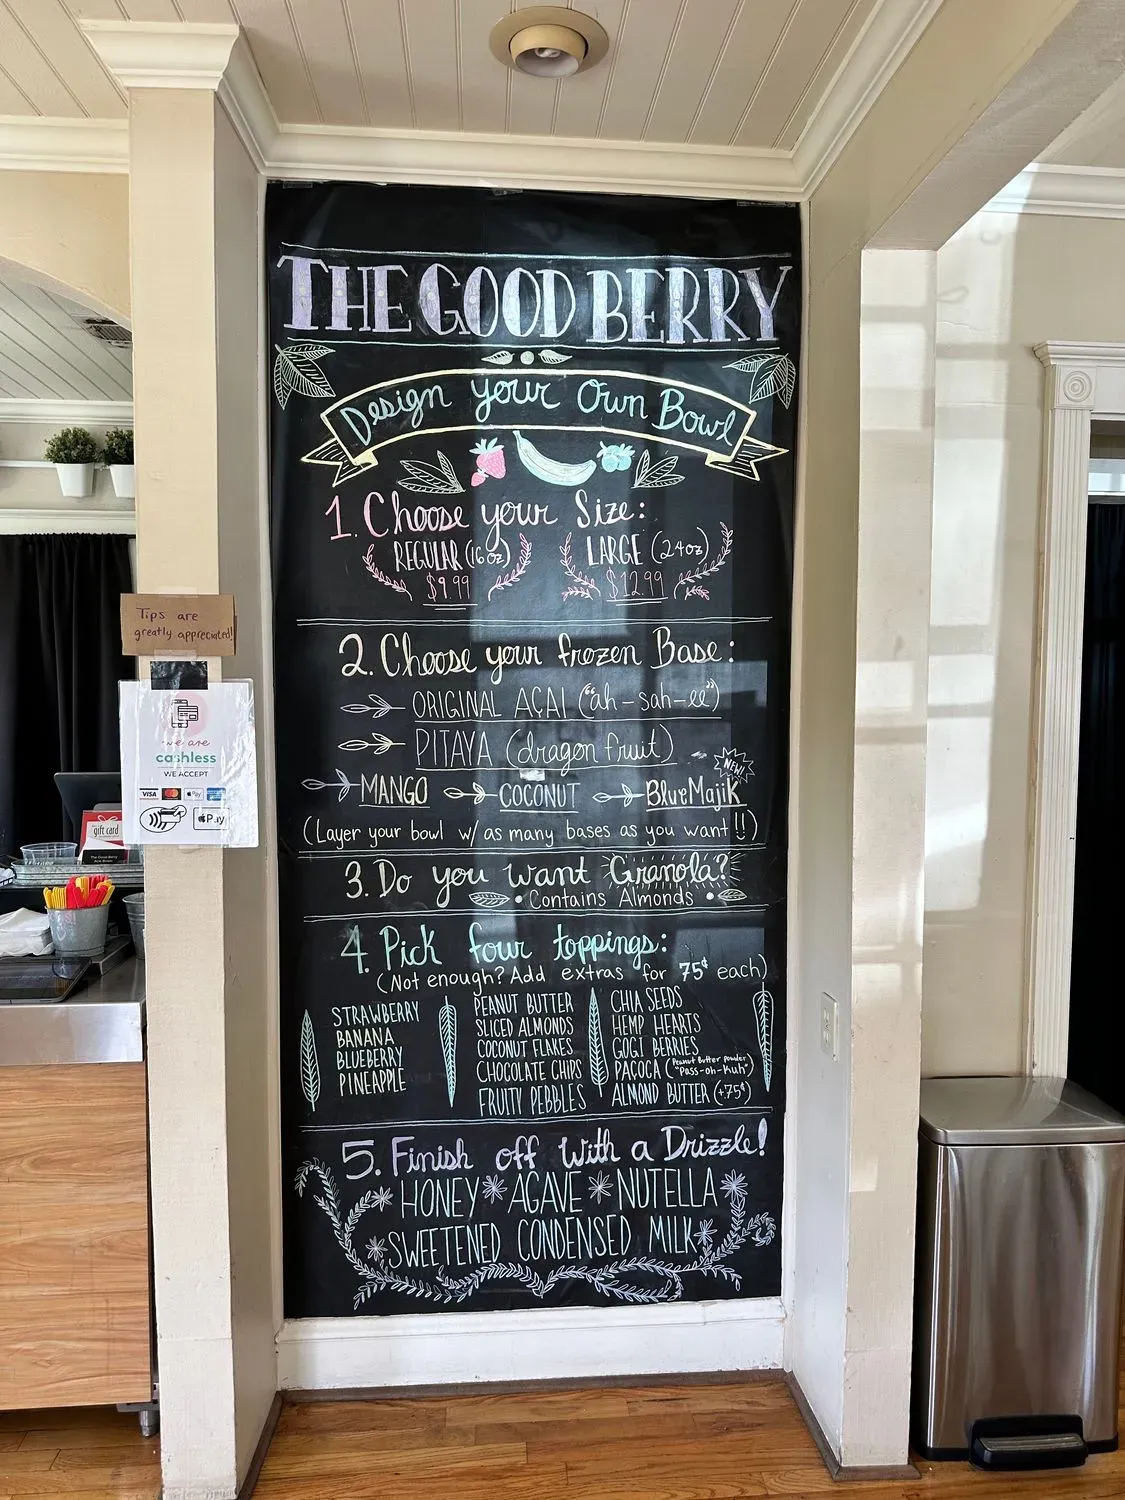 THE GOOD BERRY
Design your Own Bowl
1. Choose your Size:
REGULAR (16oz)
$9.99
LARGE (24oz)
$12.99
2. Choose your frozen Base:
ORIGINAL AÇAI ("ah-sah-ee")
PITAYA (dragon fruit)
NEW!
MANGO COCONUT BlueMajik
(Layer your bowl w/ as many bases as you want!!)
3. Do you want Granola?
• Contains Almonds •
4. Pick four toppings:
(Not enough? Add extras for 75¢ each)
STRAWBERRY
BANANA
BLUEBERRY
PINEAPPLE
PEANUT BUTTER
SLICED ALMONDS
COCONUT FLAKES
CHOCOLATE CHIPS
FRUITY PEBBLES
CHIA SEEDS
HEMP HEARTS
GOGI BERRIES
PAÇOCA (Peanut Butter powder
"Pass-oh-Kuh")
ALMOND BUTTER (+75¢)
5. Finish off With a Drizzle!
HONEY * AGAVE * NUTELLA
SWEETENED CONDENSED MILK
Tips are
greatly appreciated!
we are
cashless
WE ACCEPT
VISA Pay
Pay
gift card
The Good Berry